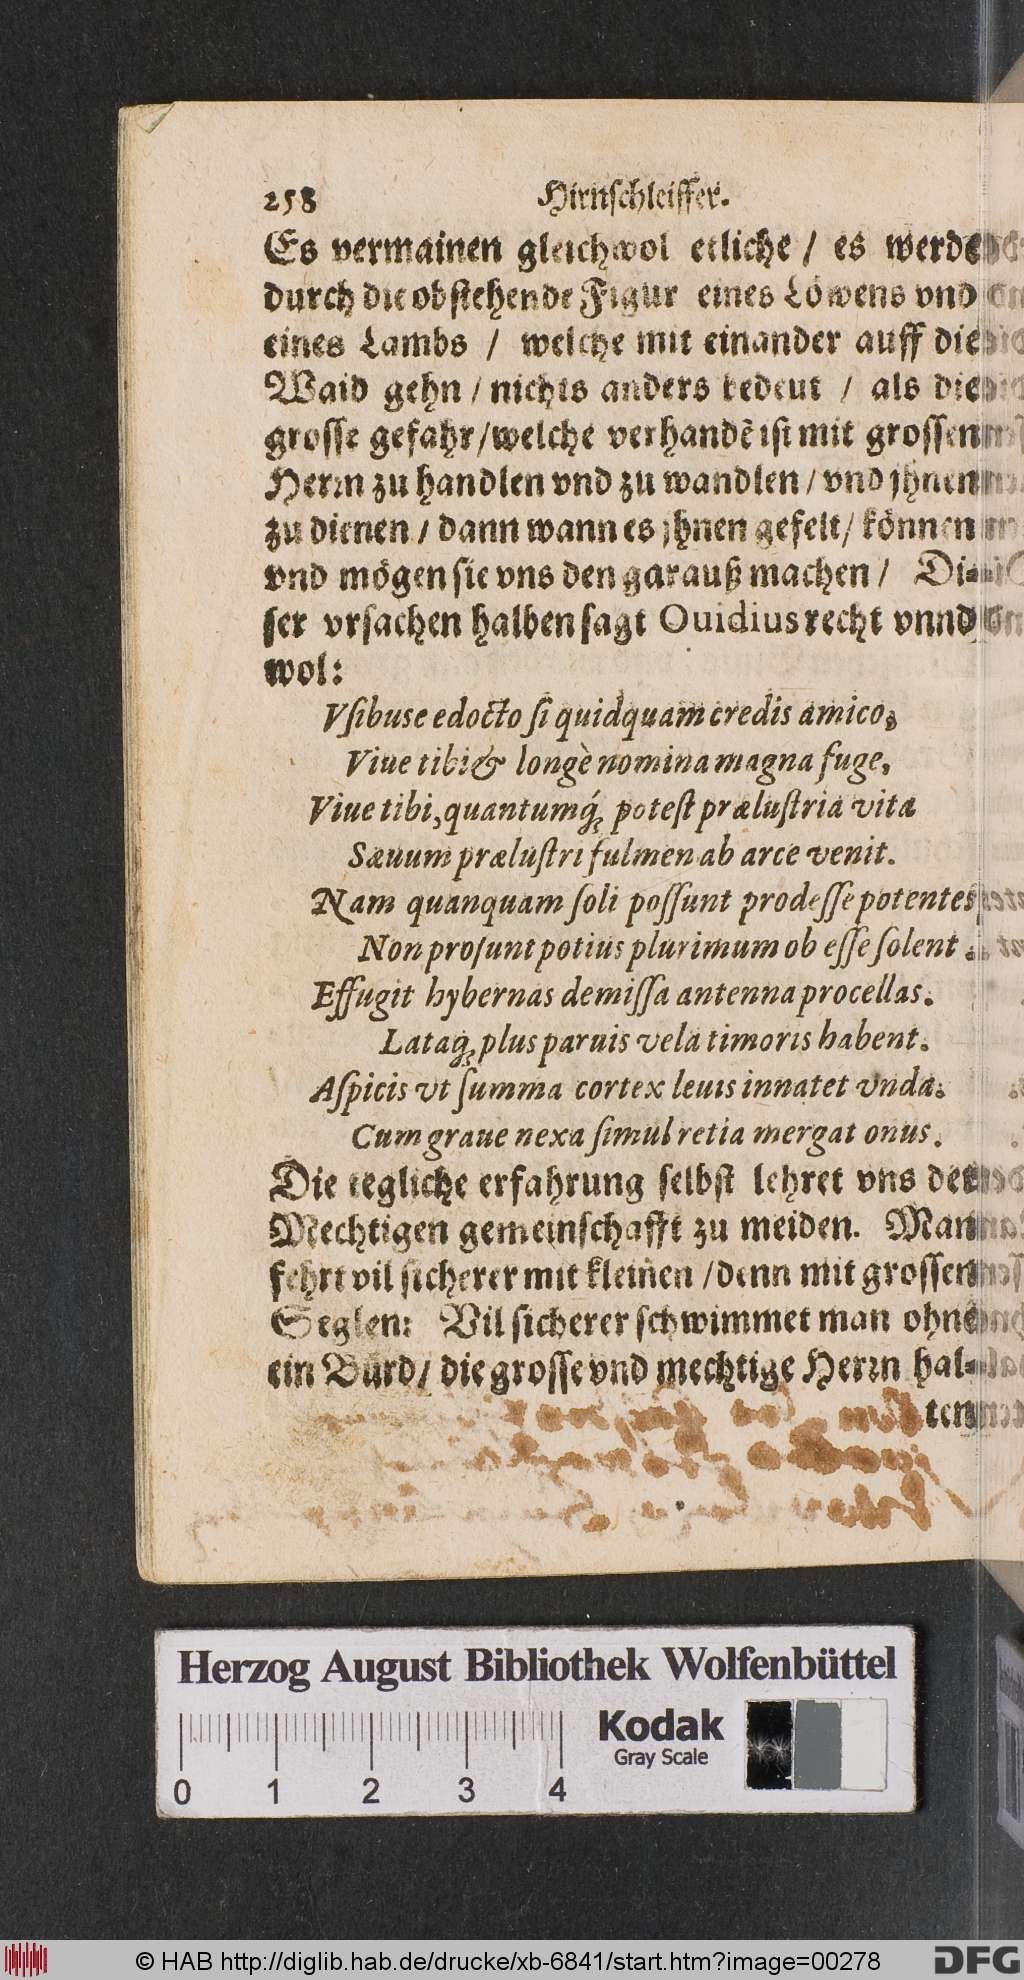 258 Hirnschleiffer.
Es vermainen gleichwol etliche / es werde
durch die obstehende Figur eines Löwens vnd
eines Lambs / welche mit einander auff die
Waid gehn / nichts anders bedeut / als die
grosse gefahr / welche verhandẽ ist mit grossen
Herrn zu handlen vnd zu wandlen / vnd jhnen
zu dienen / dann wann es jhnen gefelt / können
vnd mögen sie vns den garauß machen / Di-
ser vrsachen halben sagt Ouidius recht vnnd
wol:
Vsibus e edocto si quidquam credis amico,
Viue tibi & longè nomina magna fuge,
Viue tibi, quantumq́; potest prælustria vita
Sæuum prælustri fulmen ab arce venit.
Nam quanquam soli possunt prodesse potentes
Non prosunt potius plurimum ob esse solent.
Effugit hybernas demissa antenna procellas.
Lataq; plus paruis vela timoris habent.
Aspicis vt summa cortex leuis innatet vnda.
Cum graue nexa simul retia mergat onus.
Die tegliche erfahrung selbst lehret vns der
Mechtigen gemeinschafft zu meiden. Man
fehrt vil sicherer mit kleinen / denn mit grossen
Seglen: Vil sicherer schwimmet man ohne
ein Bürd / die grosse vnd mechtige Herrn hal-
ten
Herzog August Bibliothek Wolfenbüttel
Kodak
Gray Scale
0 1 2 3 4
© HAB http://diglib.hab.de/drucke/xb-6841/start.htm?image=00278
DFG